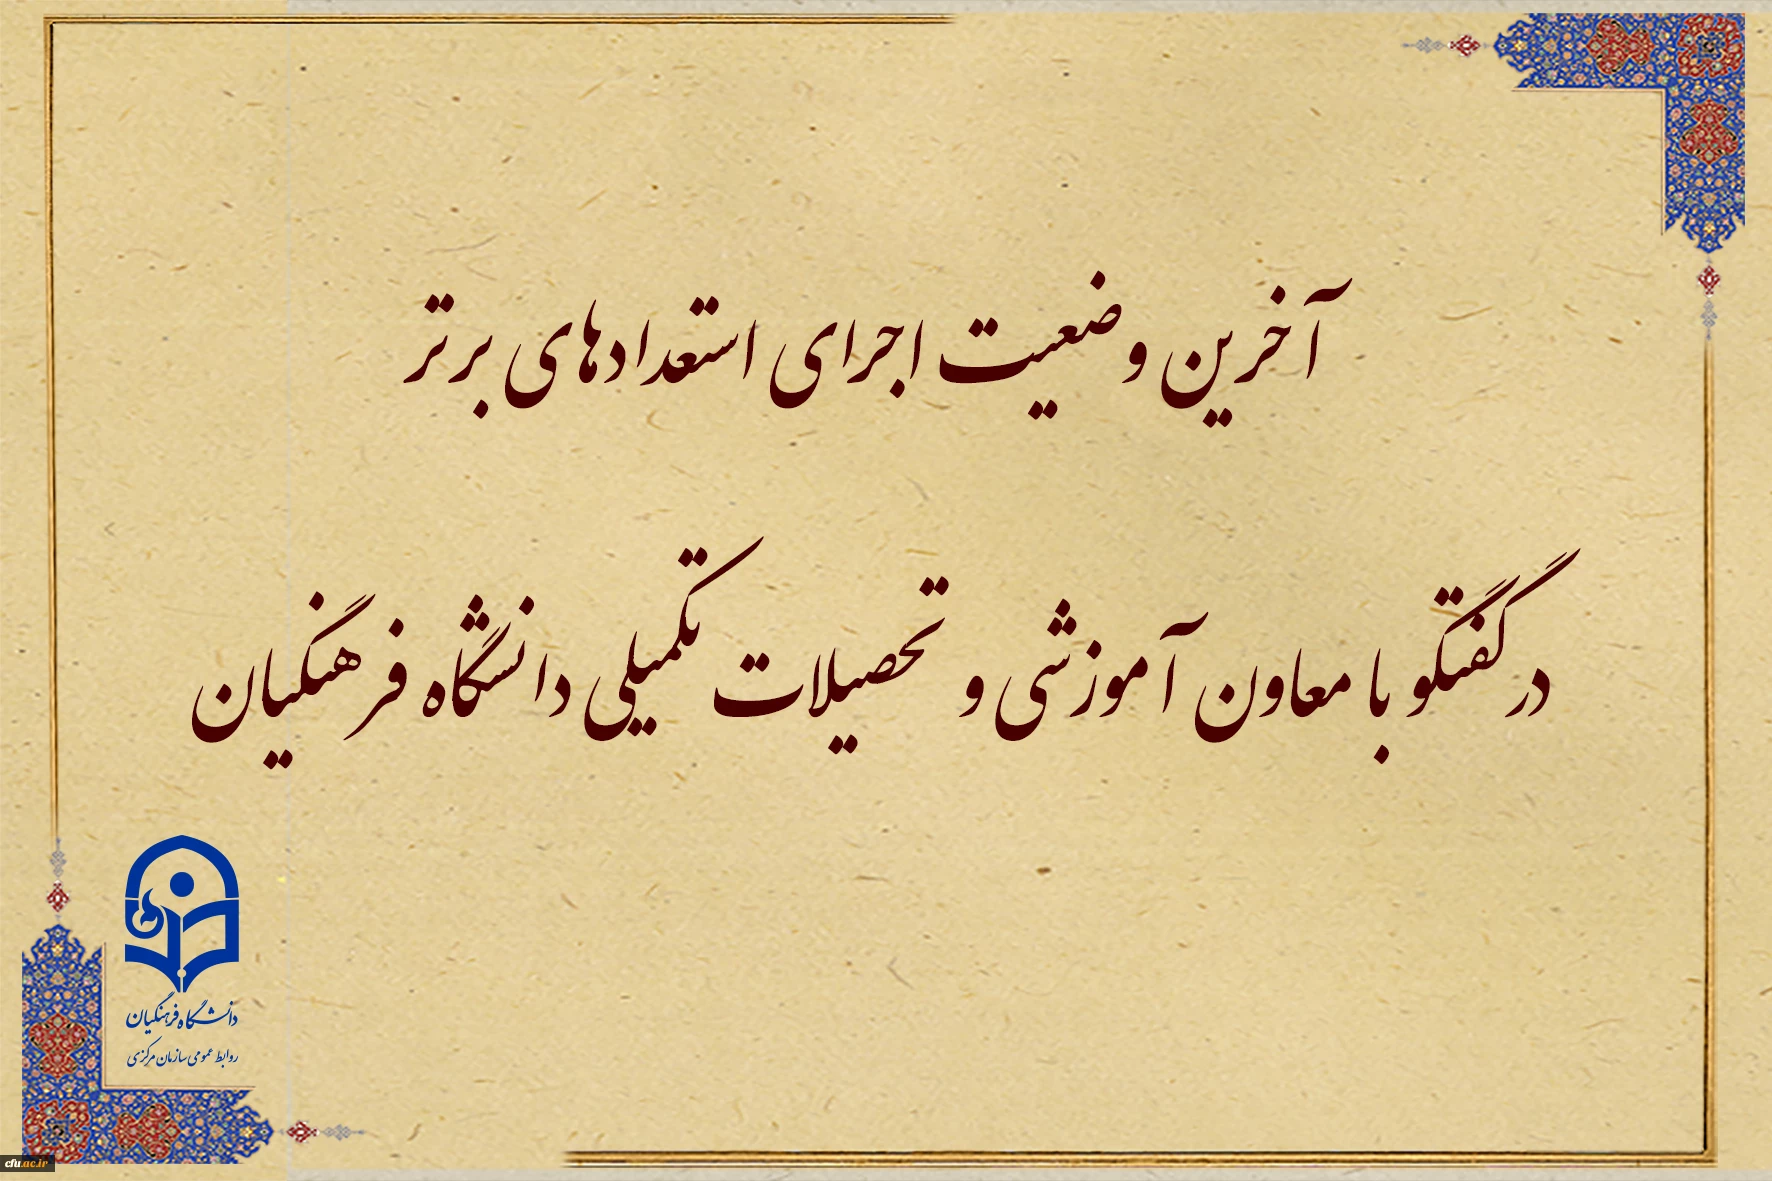 آخرین وضعیت اجرای استعدادهای برتر
در گفتگو با معاون آموزشی و تحصیلات تکمیلی دانشگاه فرهنگیان
دانشگاه فرهنگیان
روابط عمومی سازمان مرکزی
cfu.ac.ir